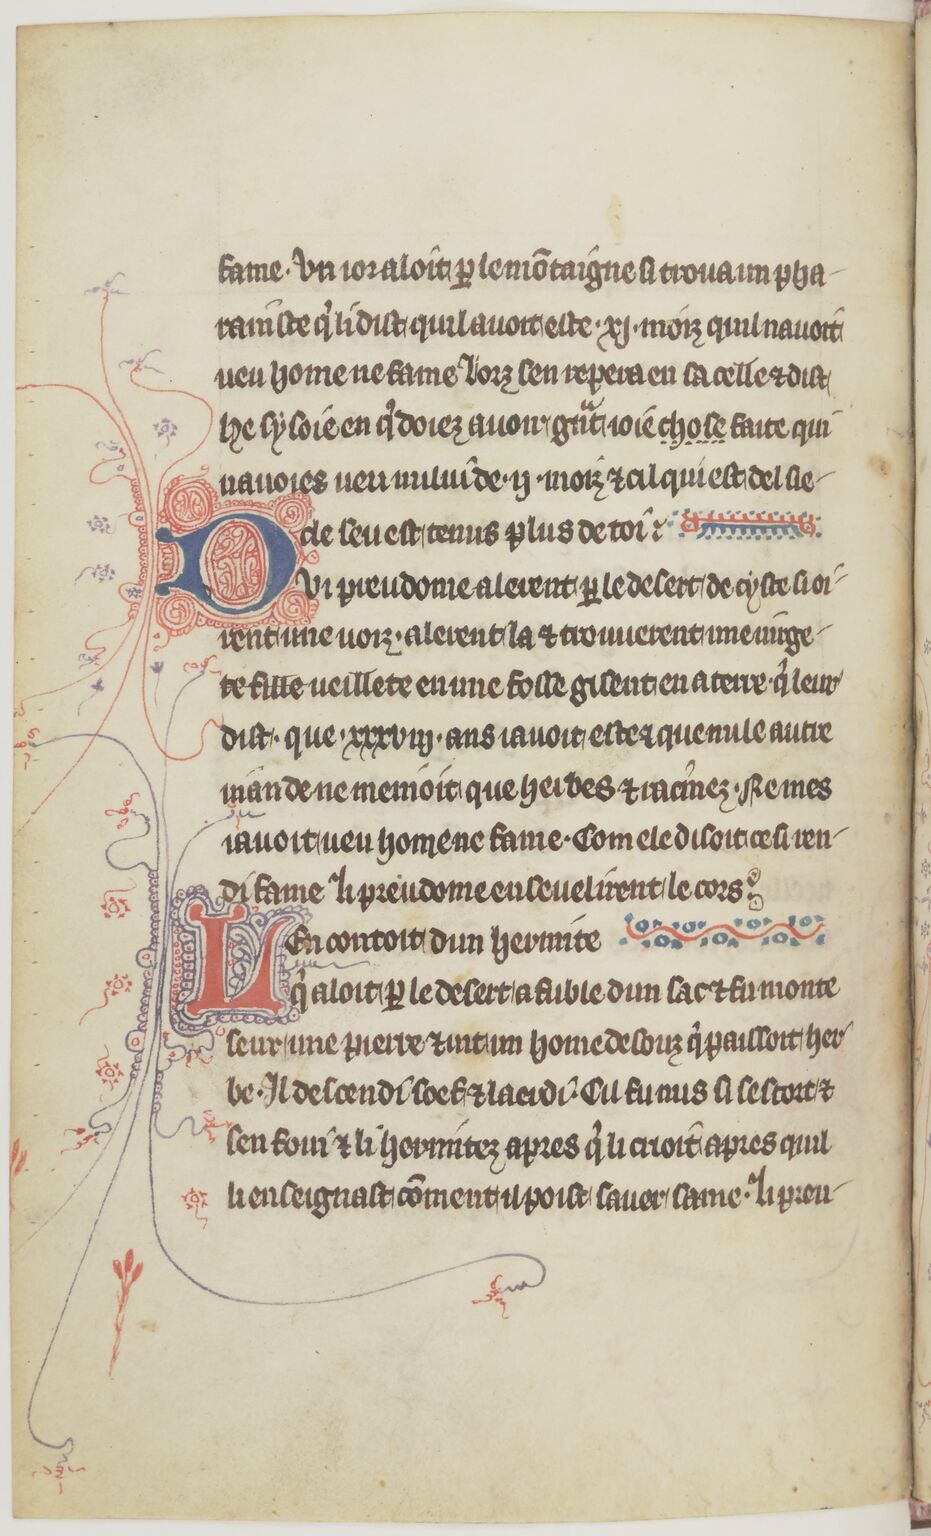 fame. Vn ior aloit ꝑ le mōtaigne si troua un pha-
ramiste q̓ li dist quil auoit este .xj. moiz quil nauoit
ueu home ne fame Lorz sen repera en sa celle ⁊ dist
he sy soie en q̓ doiez auoir ioie chose faite qui
nauoies ueu nului de .ij. moiz ⁊ cil qui est del sie-
cle seu est tenus plus de toi
DVi preudome alerent ꝑ le desert de cyste si oi-
rent une uoiz. alerent la ⁊ trouuerent une uirge-
te fille ueillete en une fosse gisent en a terre. q̓ leur
dist. que .xxxviij. ans i auoit este ⁊ que nule autre
uiande ne menioit que herbes ⁊ racinez. Ne mes
i auoit ueu home ne fame. Com ele disoit ce si ren-
di lame li preudome enseuelirent le cors
LEn contoit dun hermite
q̓ aloit ꝑ le desert afuble dun sac ⁊ fu monte
seur une pierre ⁊ uit un home desouz q̓ paissoit her-
be. Il descendi soef ⁊ laerdi. Cil fu nus si sestort ⁊
sen foui ⁊ li hermitez apres q̓ li crioit apres quil
li enseignast cōment il poist sauer same. li preu-